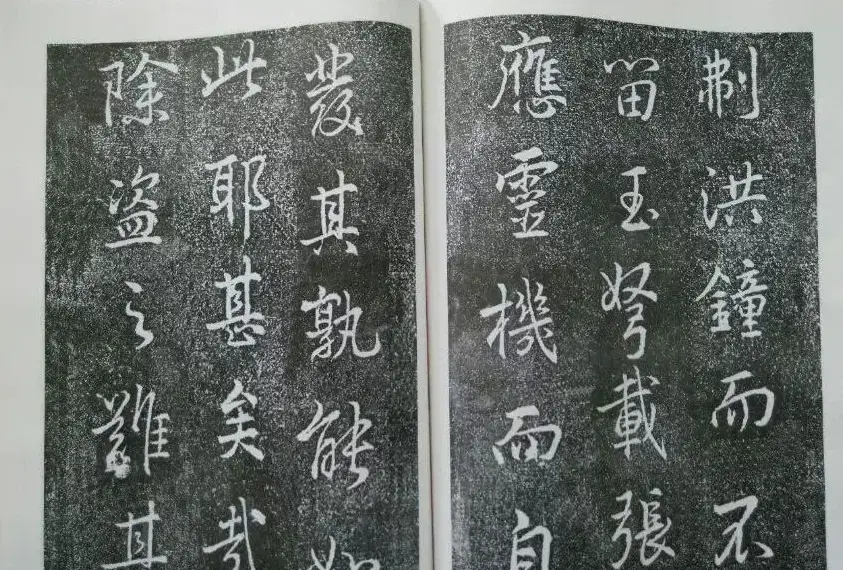 制洪鐘而不
留玉弩載張
應靈機而自
發其孰能如
此耶甚矣哉
除盗之難其